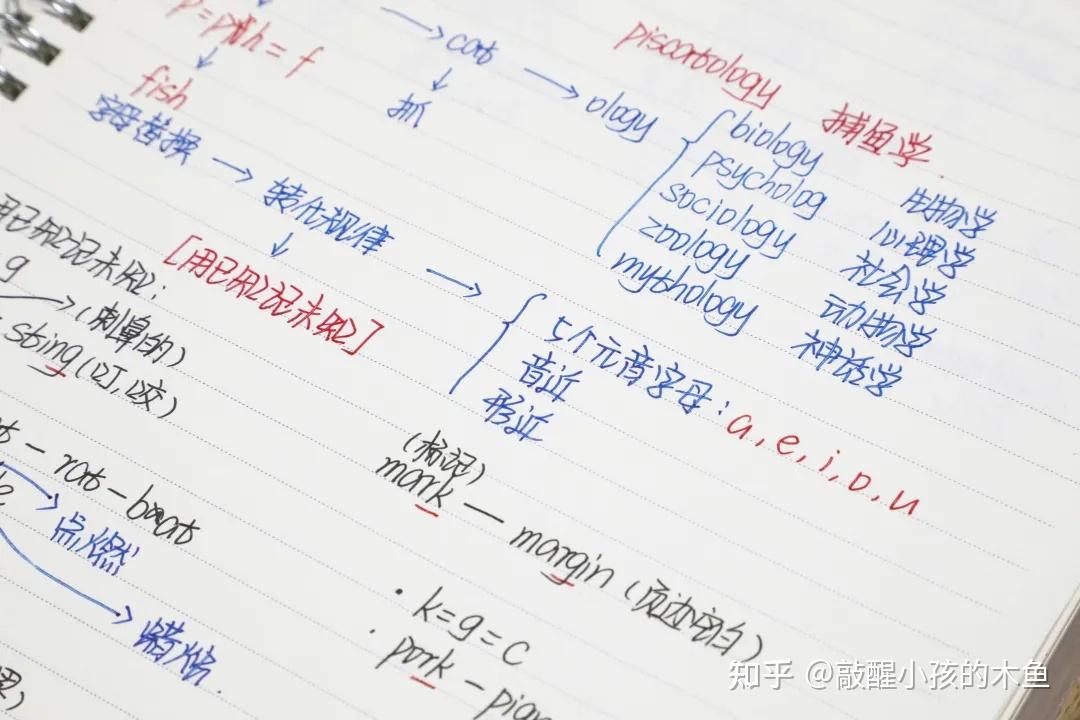 piscatology
捕鱼学
→ cat → ology
抓
biology 生物学
psycholog 心理学
sociology 社会学
zoology 动物学
mythology 神话学
= f
fish
字母替换 → 转化规律 →
[用已知记未知]
5个元音字母: a, e, i, o, u
音近
形近
用已知记未知:
g
→ (刺鼻的)
sting (叮,咬)
- rat - boat
点燃
蜡烛
(标记)
mark — margin (页边空白)
· k=g=c
· pork -
知乎 @敲醒小孩的木鱼